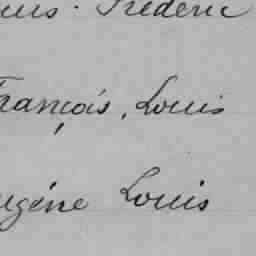 Louis. Frédéric
François, Louis
Eugéne Louis